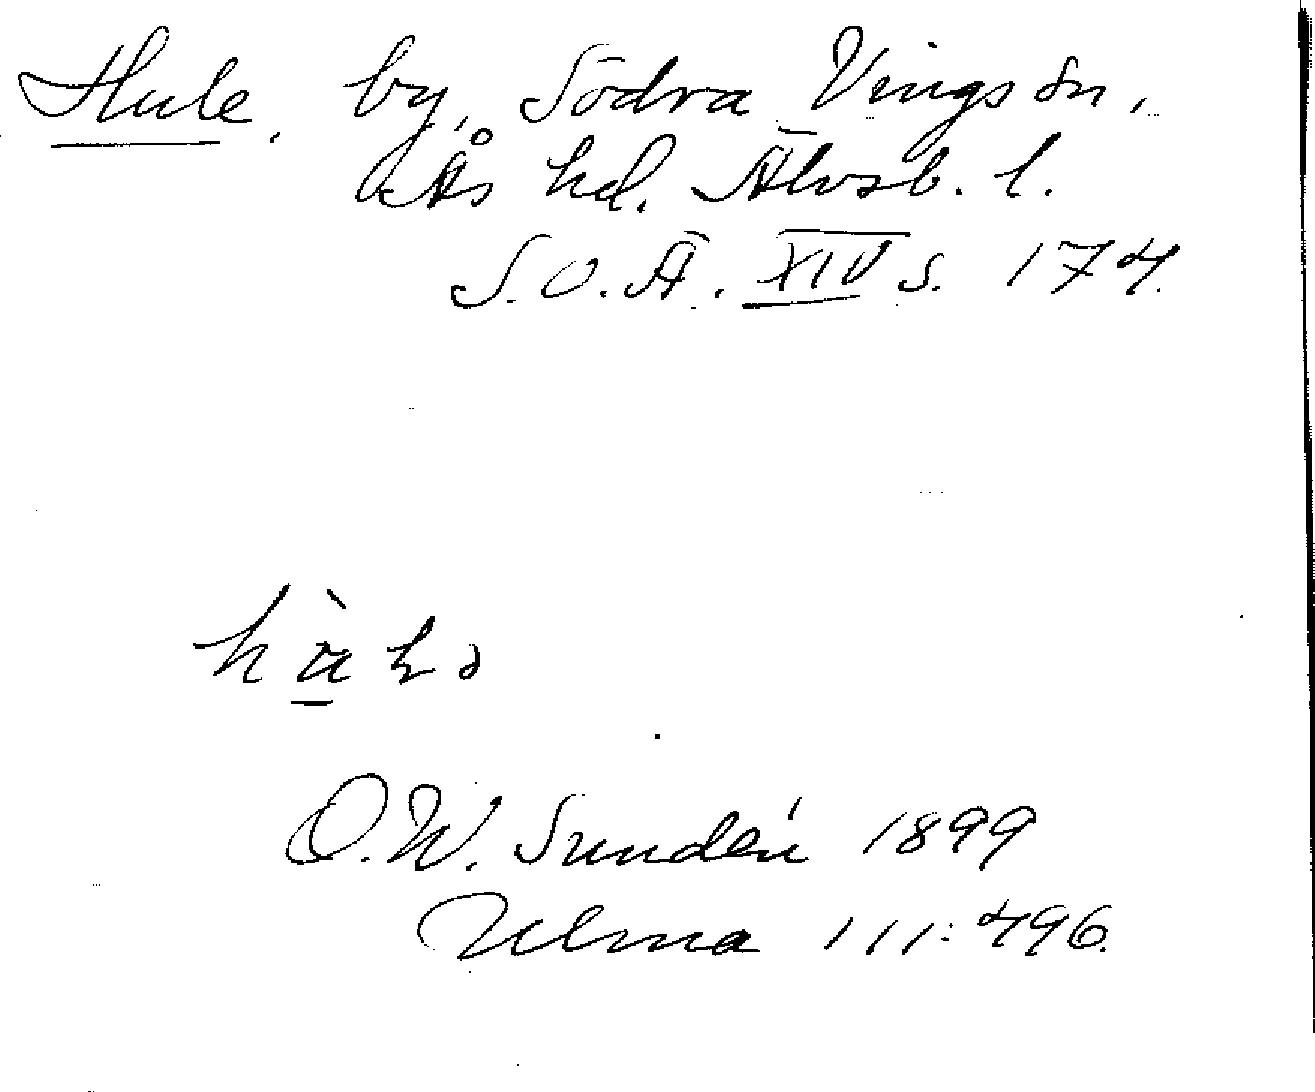 Hule, by, Södra Vings sn,
Ås hd. Älvsb. l.
S.O.Ä. XIV s. 174.
O.W. Sundén 1899
Ulma 111:496.